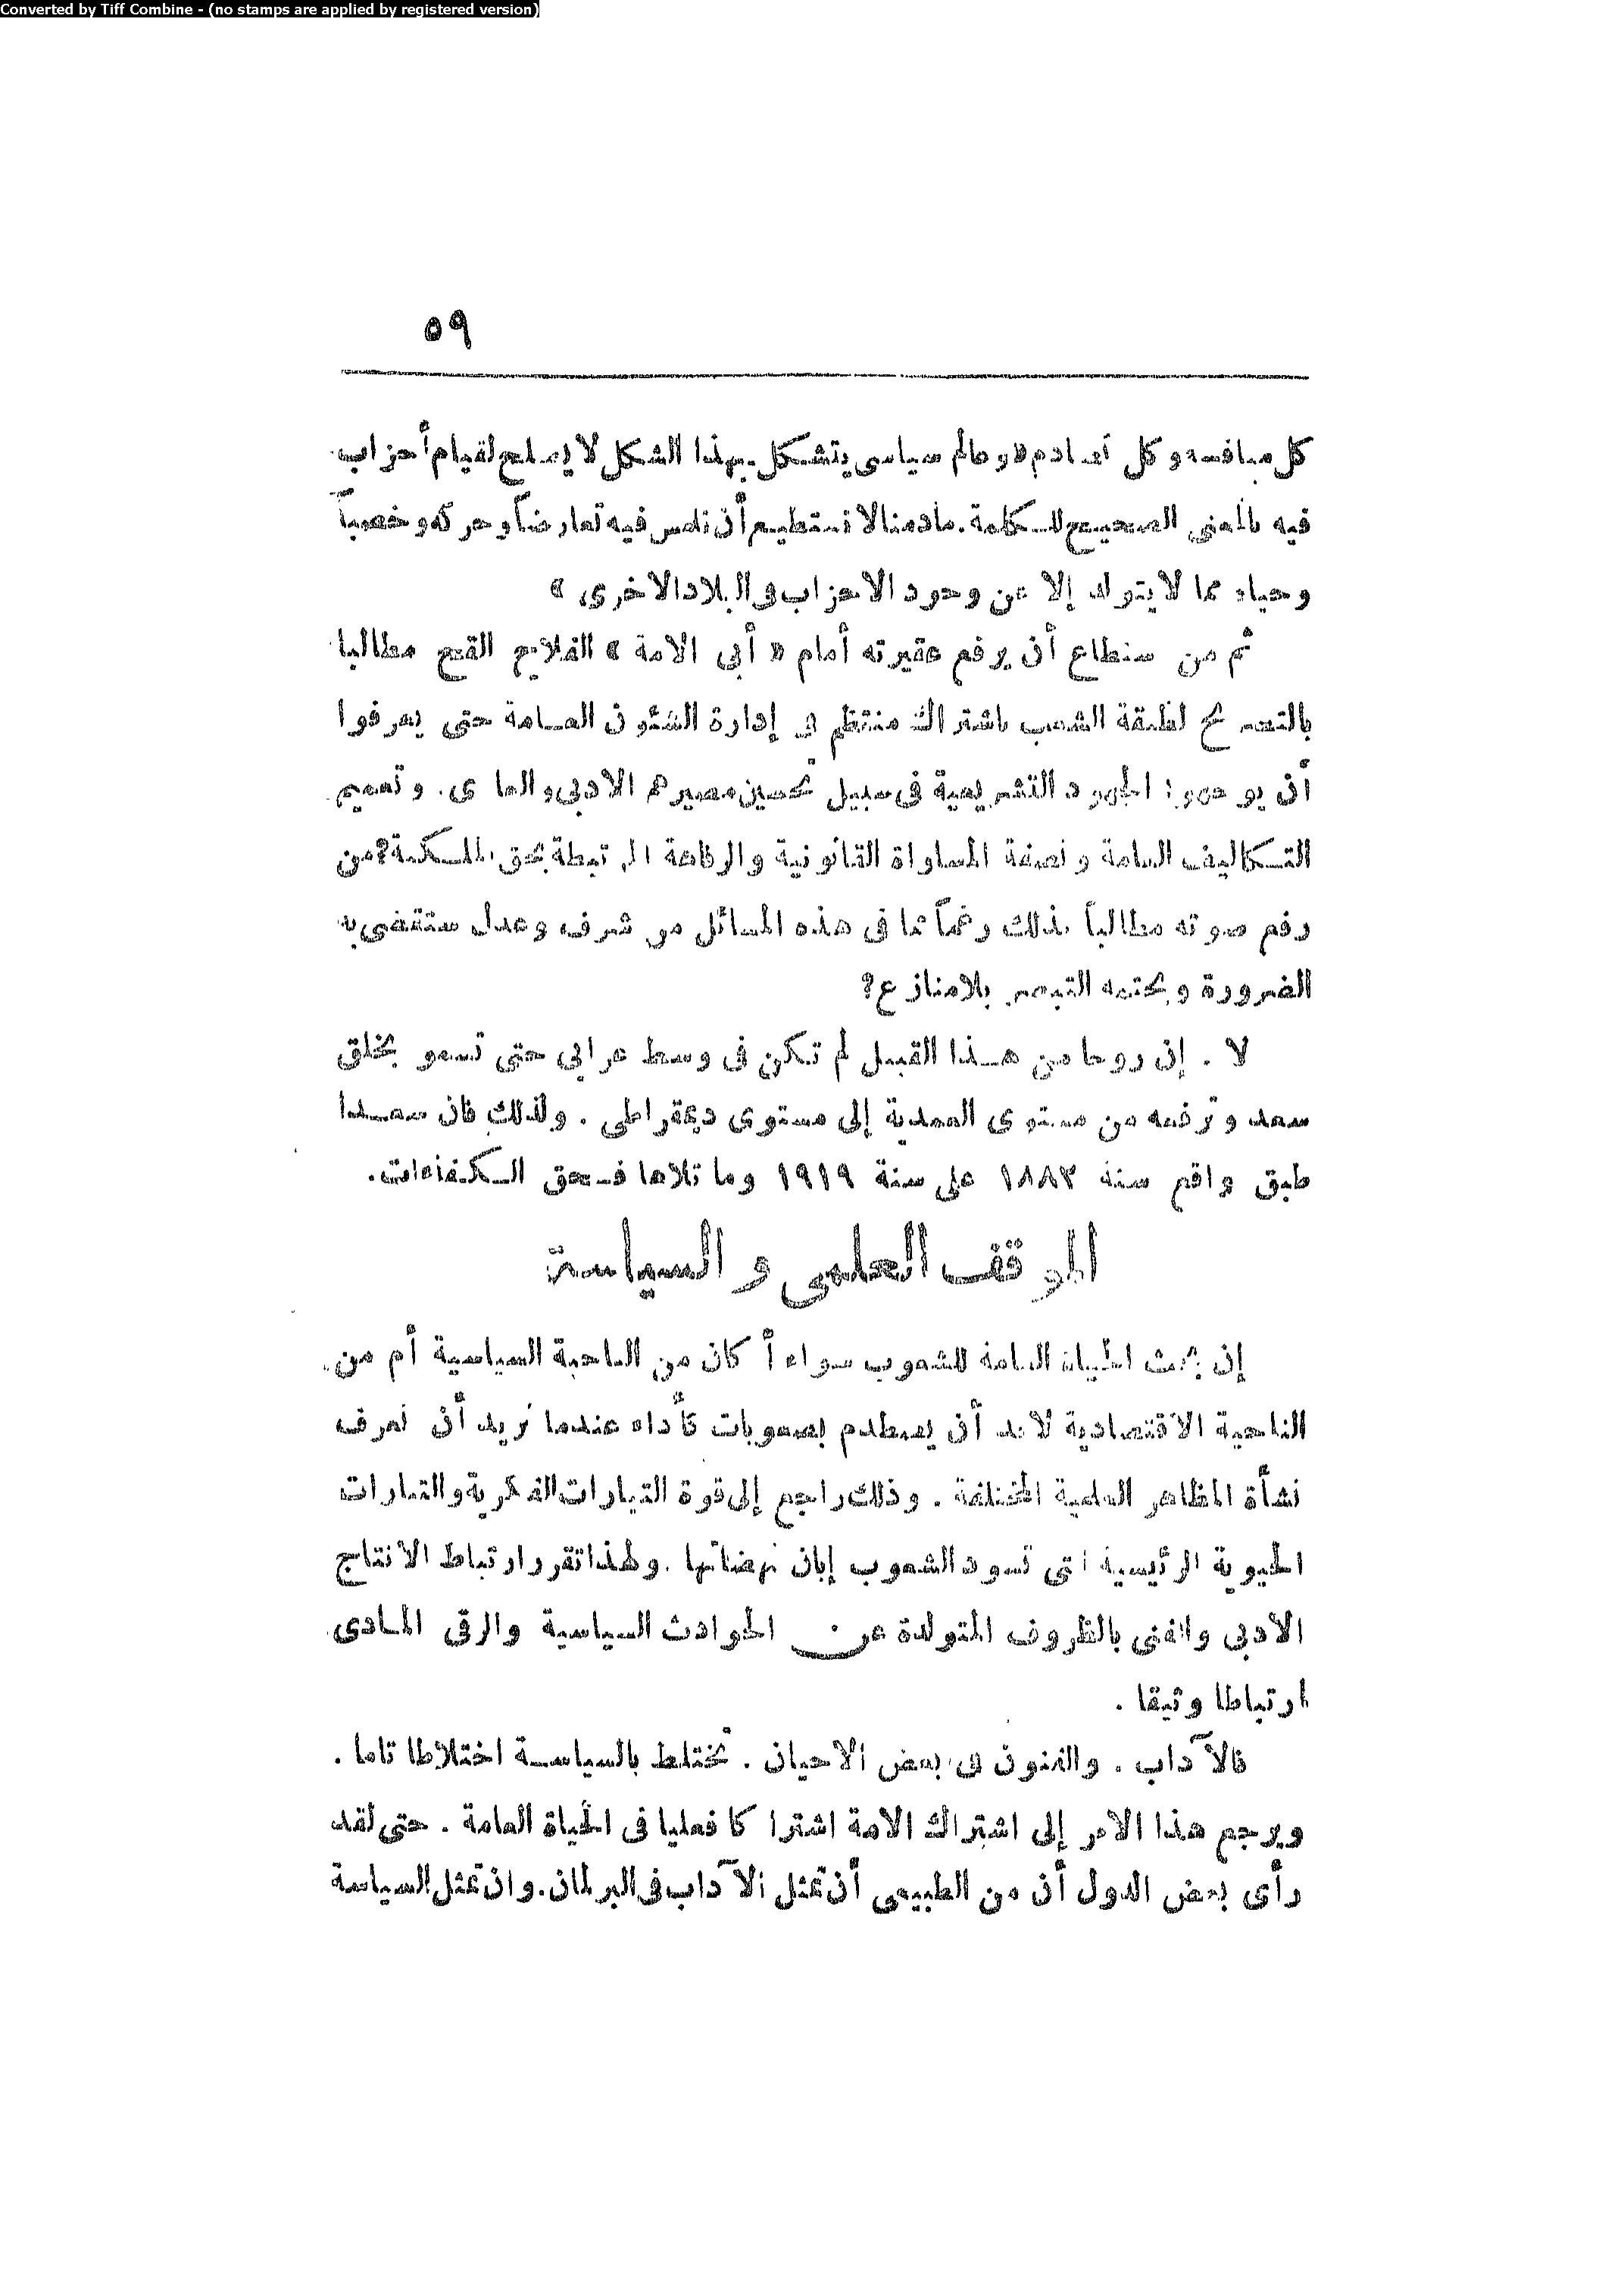 Converted by Tiff Combine - (no stamps are applied by registered version)
٥٩
كل منافسه وكل تصادم «وعالم سياسى يتشكل بهذا الشكل لا يصلح لقيام أحزاب
فيه بالمعنى الصحيح للكلمة. مادمنا لا نستطيع أن نلمس فيه تعارضاً وحركه وخصباً
وحياه مما لا يتولد إلا عن وجود الاحزاب فى البلاد الاخرى»
ثم من ستطاع أن يرفع عقيرته أمام « أبى الامة » الفلاح القح مطالبا
بالتصريح لطبقة الشعب باشتراك منتظم فى إدارة الشئون العامة حتى يعرفوا
أن يوجهوا الجهود التشريعية فى سبيل تحسين مصيرهم الادبى والمادى. وتعميم
التكاليف العامة وبصفة المساواة القانونية والرفاهة المرتبطة بحق الملكية؟ من
رفع صوته مطالباً بذلك رغماً مما فى هذه المسائل من شرف وعدل ستقضى به
الضرورة ويحتمه التبصر بلا منازع؟
لا . إن روحا من هذا القبيل لم تكن فى وسط عرابى حتى تسمو بخلق
سعد وترفعه من مستوى العمدية إلى مستوى ديمقراطى . ولذلك فان سعدا
طبق واقع سنة ١٨٨٢ على سنة ١٩١٩ وما تلاها فسحق الكفاءات.
الموقف العلمى والسياسة
إن بحث الحياة العامة للشعوب سواءاً كان من الناحية السياسية أم من
الناحية الاقتصادية لابد أن يصطدم بصعوبات كأداه عندما نريد أن نعرف
نشأة المظاهر العلمية المختلفة . وذلك راجع إلى قوة التيارات الفكرية والتيارات
الحيوية الرئيسية التى تسود الشعوب إبان نهضاتها . ولهذا تقرر ارتباط الانتاج
الادبى والفنى بالظروف المتولدة عن الحوادث السياسية والرقى المادى
ارتباطا وثيقا .
فالآداب . والفنون فى بعض الاحيان . تختلط بالسياسة اختلاطا تاما .
ويرجع هذا الامر إلى اشتراك الامة اشتراكا فعليا فى الحياة العامة . حتى لقد
رأى بعض الدول أن من الطبيعى أن تمثل الآداب فى البرلمان. وان تمثل السياسة